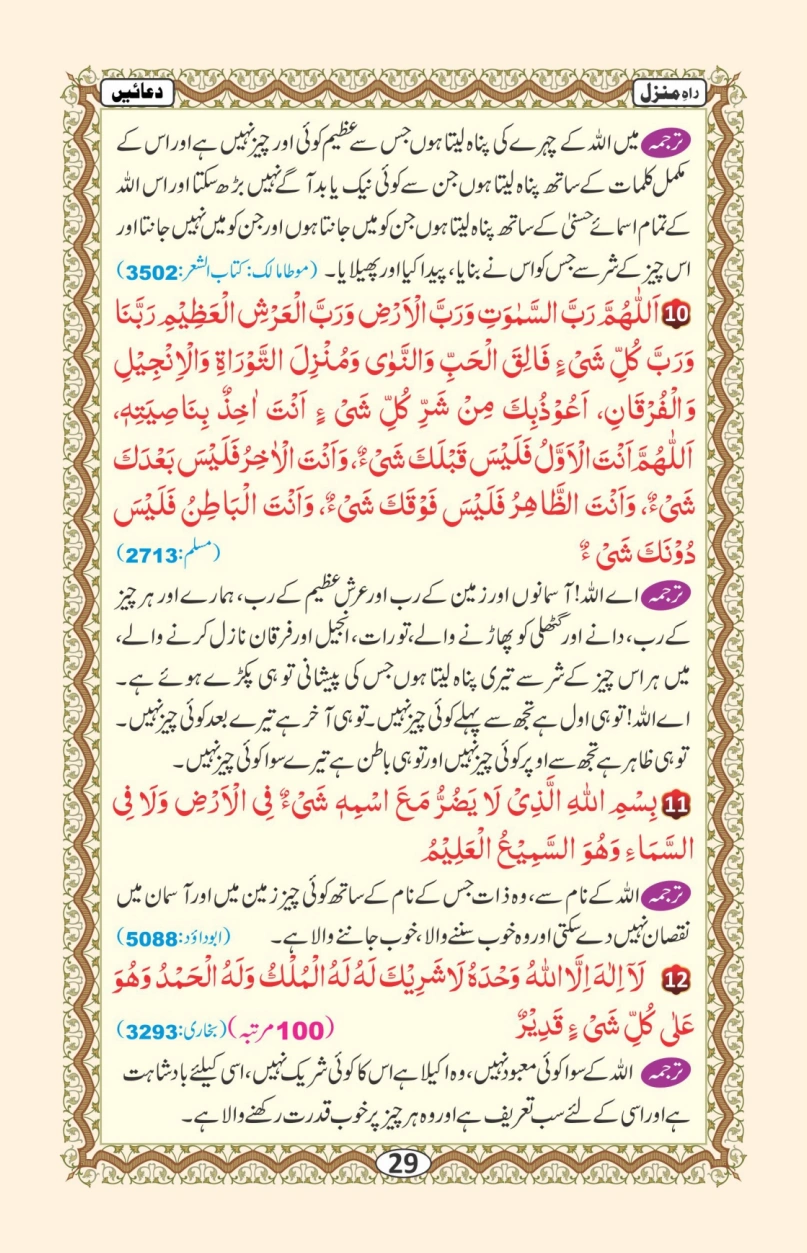 راہِ منزل
دعائیں
ترجمہ میں اللہ کے چہرے کی پناہ لیتا ہوں جس سے عظیم کوئی اور چیز نہیں ہے اور اس کے
مکمل کلمات کے ساتھ پناہ لیتا ہوں جن سے کوئی نیک یا بد آگے نہیں بڑھ سکتا اور اس اللہ
کے تمام اسمائے حسنیٰ کے ساتھ پناہ لیتا ہوں جن کو میں جانتا ہوں اور جن کو میں نہیں جانتا اور
اس چیز کے شر سے جس کو اس نے بنایا، پیدا کیا اور پھیلایا۔ (موطا مالک: کتاب الشعر: 3502)
10 اَللّٰهُمَّ رَبَّ السَّمٰوٰتِ وَرَبَّ الْاَرْضِ وَرَبَّ الْعَرْشِ الْعَظِيْمِ رَبَّنَا
وَرَبَّ كُلِّ شَیْءٍ فَالِقَ الْحَبِّ وَالنَّوٰى وَمُنْزِلَ التَّوْرَاةِ وَالْاِنْجِيْلِ
وَالْفُرْقَانِ، اَعُوْذُبِكَ مِنْ شَرِّ كُلِّ شَیْ ءٍ اَنْتَ اٰخِذٌ بِنَاصِيَتِهٖ،
اَللّٰهُمَّ اَنْتَ الْاَوَّلُ فَلَيْسَ قَبْلَكَ شَیْءٌ، وَاَنْتَ الْاٰخِرُ فَلَيْسَ بَعْدَكَ
شَیْءٌ، وَاَنْتَ الظَّاهِرُ فَلَيْسَ فَوْقَكَ شَیْءٌ، وَاَنْتَ الْبَاطِنُ فَلَيْسَ
دُوْنَكَ شَیْ ءٌ (مسلم: 2713)
ترجمہ اے اللہ! آسمانوں اور زمین کے رب اور عرش عظیم کے رب، ہمارے اور ہر چیز
کے رب، دانے اور گٹھلی کو پھاڑنے والے، تورات، انجیل اور فرقان نازل کرنے والے،
میں ہر اس چیز کے شر سے تیری پناہ لیتا ہوں جس کی پیشانی تو ہی پکڑے ہوئے ہے۔
اے اللہ! تو ہی اول ہے تجھ سے پہلے کوئی چیز نہیں۔ تو ہی آخر ہے تیرے بعد کوئی چیز نہیں۔
تو ہی ظاہر ہے تجھ سے اوپر کوئی چیز نہیں اور تو ہی باطن ہے تیرے سوا کوئی چیز نہیں۔
11 بِسْمِ اللهِ الَّذِیْ لَا يَضُرُّ مَعَ اسْمِهٖ شَیْءٌ فِی الْاَرْضِ وَلَا فِی
السَّمَاءِ وَهُوَ السَّمِيْعُ الْعَلِيْمُ
ترجمہ اللہ کے نام سے، وہ ذات جس کے نام کے ساتھ کوئی چیز زمین میں اور آسمان میں
نقصان نہیں دے سکتی اور وہ خوب سننے والا، خوب جاننے والا ہے۔ (ابوداؤد: 5088)
12 لَآ اِلٰهَ اِلَّا اللهُ وَحْدَهٗ لَا شَرِيْكَ لَهٗ لَهُ الْمُلْكُ وَلَهُ الْحَمْدُ وَهُوَ
عَلٰى كُلِّ شَیْ ءٍ قَدِيْرٌ (100 مرتبہ) (بخاری: 3293)
ترجمہ اللہ کے سوا کوئی معبود نہیں، وہ اکیلا ہے اس کا کوئی شریک نہیں، اسی کیلئے بادشاہت
ہے اور اسی کے لئے سب تعریف ہے اور وہ ہر چیز پر خوب قدرت رکھنے والا ہے۔
29